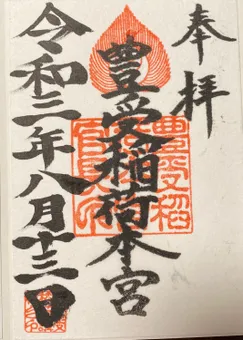 奉拝
豊受稲荷本宮
令和三年八月十三日